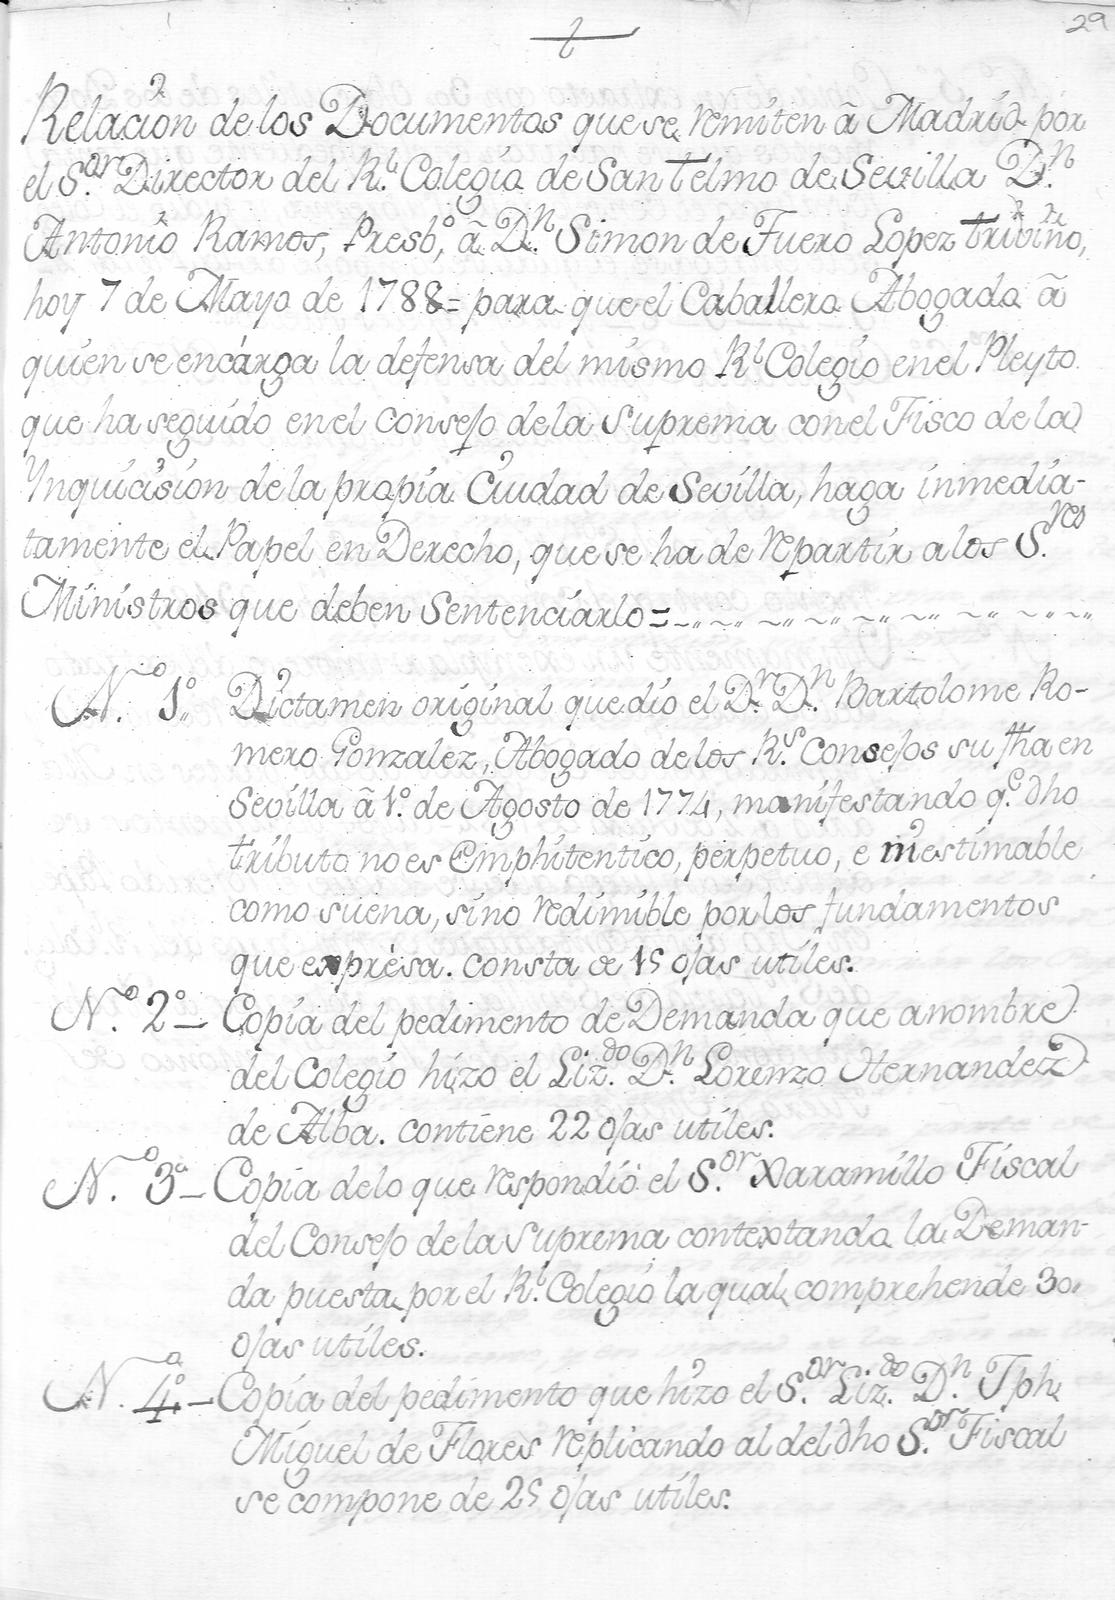 29
Relacion de los Documentos que se remiten â Madrid por
el S.or Director del R.l Colegio de San Telmo de Sevilla D.n
Antonio Ramos, Presb.o, â D.n Simon de Fuero Lopez triviño,
hoy 7 de Mayo de 1788 = para que el Caballero Abogado â
quien se encárga la defensa del mismo R.l Colegio en el Pleyto
que ha seguido en el consejo de la suprema con el Fisco de la
Ynquicision de la propia Ciudad de Sevilla, haga inmedia-
tamente el Papel en Derecho, que se ha de repartir a los S.res
Ministros que deben Sentenciarlo =
N.o 1.o Dictamen original que dio el D.r D.n Bartolome Ro-
mero Gonzalez, Abogado de los R.s Consejos su fha en
Sevilla â 1.o de Agosto de 1774, manifestando q.e dho
tributo no es Emphitentico, perpetuo, e inestimable
como suena, sino redimible por los fundamentos
que exprèsa. consta de 15 ojas utiles.
N.o 2.o — Copia del pedimento de Demanda que a nombre
del Colegio hizo el Liz.do D.n Lorenzo Hernandez
de Alba. contiene 22 ojas utiles.
N.o 3.o — Copia de lo que respondió el S.or Xaramillo Fiscal
del Consejo de la Suprema contextando la Deman-
da puesta por el R.l Colegio la qual comprehende 30
ojas utiles.
N.o 4.o — Copia del pedimento que hizo el S.or Liz.do D.n Jph
Miguel de Flores replicando al del dho S.or Fiscal
se compone de 25 ojas utiles.